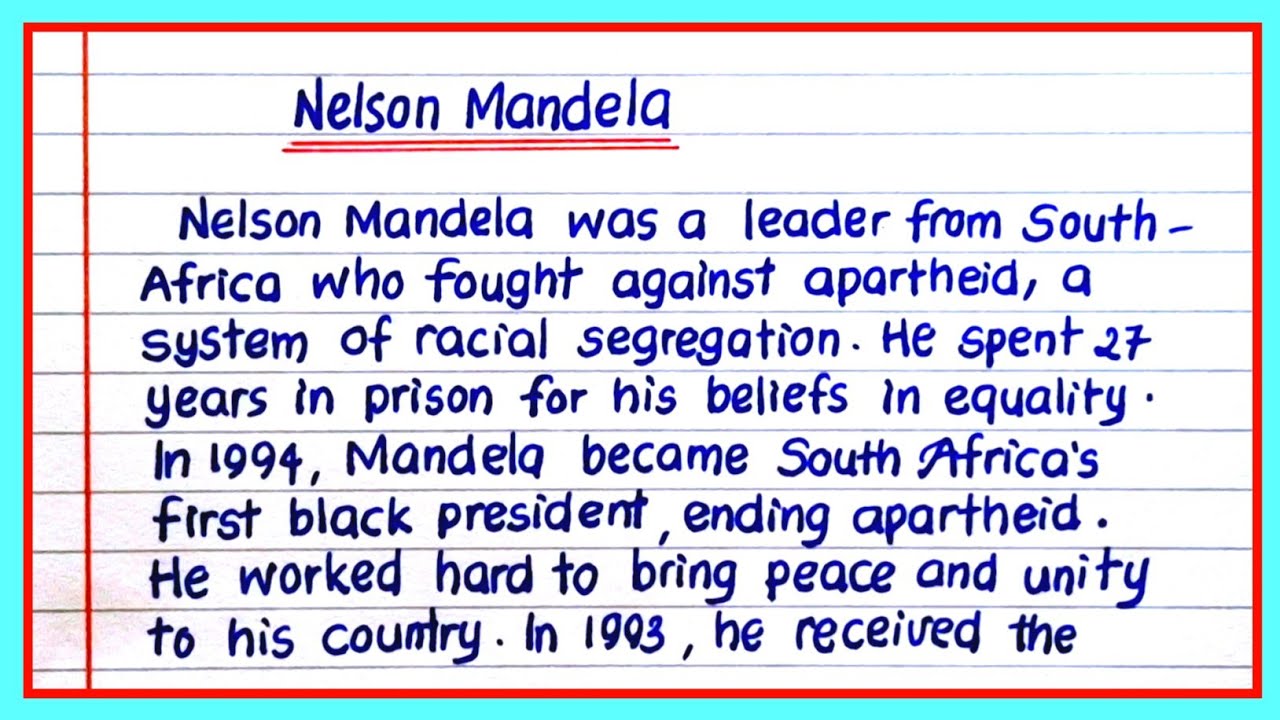 Nelson Mandela
Nelson Mandela was a leader from South-
Africa who fought against apartheid, a
system of racial segregation. He spent 27
years in prison for his beliefs in equality.
In 1994, Mandela became South Africa's
first black president, ending apartheid.
He worked hard to bring peace and unity
to his country. In 1993, he received the